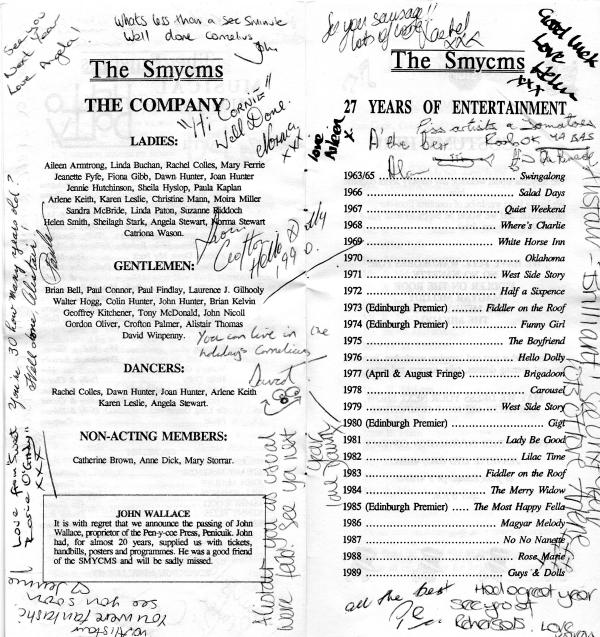 See you
Next Year
Love Angela!
Whats less than a see 5 minute
Well done Cornelius
John
The Smycms
THE COMPANY
"Hi CORNIE"
Well Done.
Norma
xxx
LADIES:
Aileen Armstrong, Linda Buchan, Rachel Colles, Mary Ferrie
Jeanette Fyfe, Fiona Gibb, Dawn Hunter, Joan Hunter
Jennie Hutchinson, Sheila Hyslop, Paula Kaplan
Arlene Keith, Karen Leslie, Christine Mann, Moira Miller
Sandra McBride, Linda Paton, Suzanne Riddoch
Helen Smith, Sheilagh Stark, Angela Stewart, Norma Stewart
Catriona Wason.
from
Crofton
Hello Dolly
1990.
GENTLEMEN:
Brian Bell, Paul Connor, Paul Findlay, Laurence J. Gilhooly
Walter Hogg, Colin Hunter, John Hunter, Brian Kelvin
Geoffrey Kitchener, Tony McDonald, John Nicoll
Gordon Oliver, Crofton Palmer, Alistair Thomas
David Winpenny.
You can live in the
holidays Cornelius
David
DANCERS:
Rachel Colles, Dawn Hunter, Joan Hunter, Arlene Keith
Karen Leslie, Angela Stewart.
NON-ACTING MEMBERS:
Catherine Brown, Anne Dick, Mary Storrar.
JOHN WALLACE
It is with regret that we announce the passing of John
Wallace, proprietor of the Pen-y-coe Press, Penicuik. John
had, for almost 20 years, supplied us with tickets,
handbills, posters and programmes. He was a good friend
of the SMYCMS and will be sadly missed.
You're 30 how many years old?
Well done, Alistair!
Love from Sweet
Rosie O'Grady
xxx
To Alistair
You were fantastic
See you soon
Jennie
Alistair you as usual
were fab! See ya next
year
love
See you sausage!!
lots of love Rachel
xxx
Good Luck
Love
Helen
xxx
The Smycms
27 YEARS OF ENTERTAINMENT
love
Aileen
x
A' the best
Alan
Piss artists
Rools OK
1963/65 Swingalong
1966 Salad Days
1967 Quiet Weekend
1968 Where's Charlie
1969 White Horse Inn
1970 Oklahoma
1971 West Side Story
1972 Half a Sixpence
1973 (Edinburgh Premier) Fiddler on the Roof
1974 (Edinburgh Premier) Funny Girl
1975 The Boyfriend
1976 Hello Dolly
1977 (April & August Fringe) Brigadoon
1978 Carousel
1979 West Side Story
1980 (Edinburgh Premier) Gigi
1981 Lady Be Good
1982 Lilac Time
1983 Fiddler on the Roof
1984 The Merry Widow
1985 (Edinburgh Premier) The Most Happy Fella
1986 Magyar Melody
1987 No No Nanette
1988 Rose Marie
1989 Guys & Dolls
Alistair Brilliant
all the best
Had a great year
see you at
Rehearsals Love